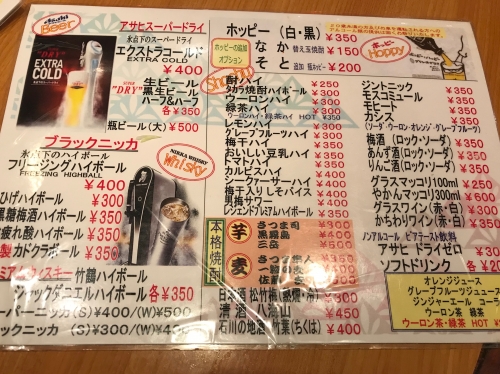 Asahi
Beer
アサヒスーパードライ
氷点下のスーパードライ
エクストラコールド
EXTRA COLD
¥400
EXTRA
COLD
"DRY"
生ビール
黒生ビール
ハーフ&ハーフ
各¥350
瓶ビール(大) ¥500
ブラックニッカ
氷点下のハイボール
フリージングハイボール
FREEZING HIGHBALL
¥400
NIKKA WHISKY
Whisky
ひげハイボール ¥300
黒糖梅酒ハイボール ¥350
疲れ酸ハイボール ¥350
製カドクラボール ¥350
ミアムウィスキー 竹鶴ハイボール
ジャックダニエルハイボール 各¥350
ーパーニッカ (S)¥400/(W)¥500
ックニッカ (S)¥300/(W)¥400
ホッピー(白・黒) ¥350
ホッピーの追加
オプション
なか 替え玉焼酎 ¥150
そと 追加 瓶ホッピー ¥200
ホッピー
Hoppy
酎ハイ ¥250
焼酎ハイボール ¥300
ウーロンハイ ¥300
緑茶ハイ ¥300
ウーロンハイ・緑茶ハイ HOT ¥350
レモンハイ ¥300
グレープフルーツハイ ¥300
梅干ハイ ¥350
おいしい豆乳ハイ ¥350
トマトハイ ¥350
カルピスハイ ¥350
梅干入りしそバイス ¥400
男梅サワー ¥400
レジェンドプレミアムハイボール ¥400
本格焼酎
芋
さつま司 ¥300
黒霧島 ¥350
三岳 ¥400
麦
¥300
¥350
¥400
日本酒 松竹梅(熱燗・冷) ¥350
清酒 八海山 ¥500
石川の地酒 竹葉(ちくは) ¥400
ジントニック ¥350
モスコミュール ¥350
モヒート ¥350
カシス ¥350
(ソーダ・ウーロン・オレンジ・グレープフルーツ)
梅酒(ロック・ソーダ) ¥350
あんず酒(ロック・ソーダ) ¥350
りんご酒(ロック・ソーダ) ¥350
グラスマッコリ100ml ¥250
やかんマッコリ300ml ¥600
グラスワイン(赤・白) ¥300
かちわりワイン(赤・白) ¥350
ノンアルコール ビアテースト飲料
アサヒ ドライゼロ ¥300
ソフトドリンク 各¥200
オレンジジュース
グレープフルーツジュース
ジンジャーエール コーラ
ウーロン茶 緑茶
ウーロン茶・緑茶 HOT ¥